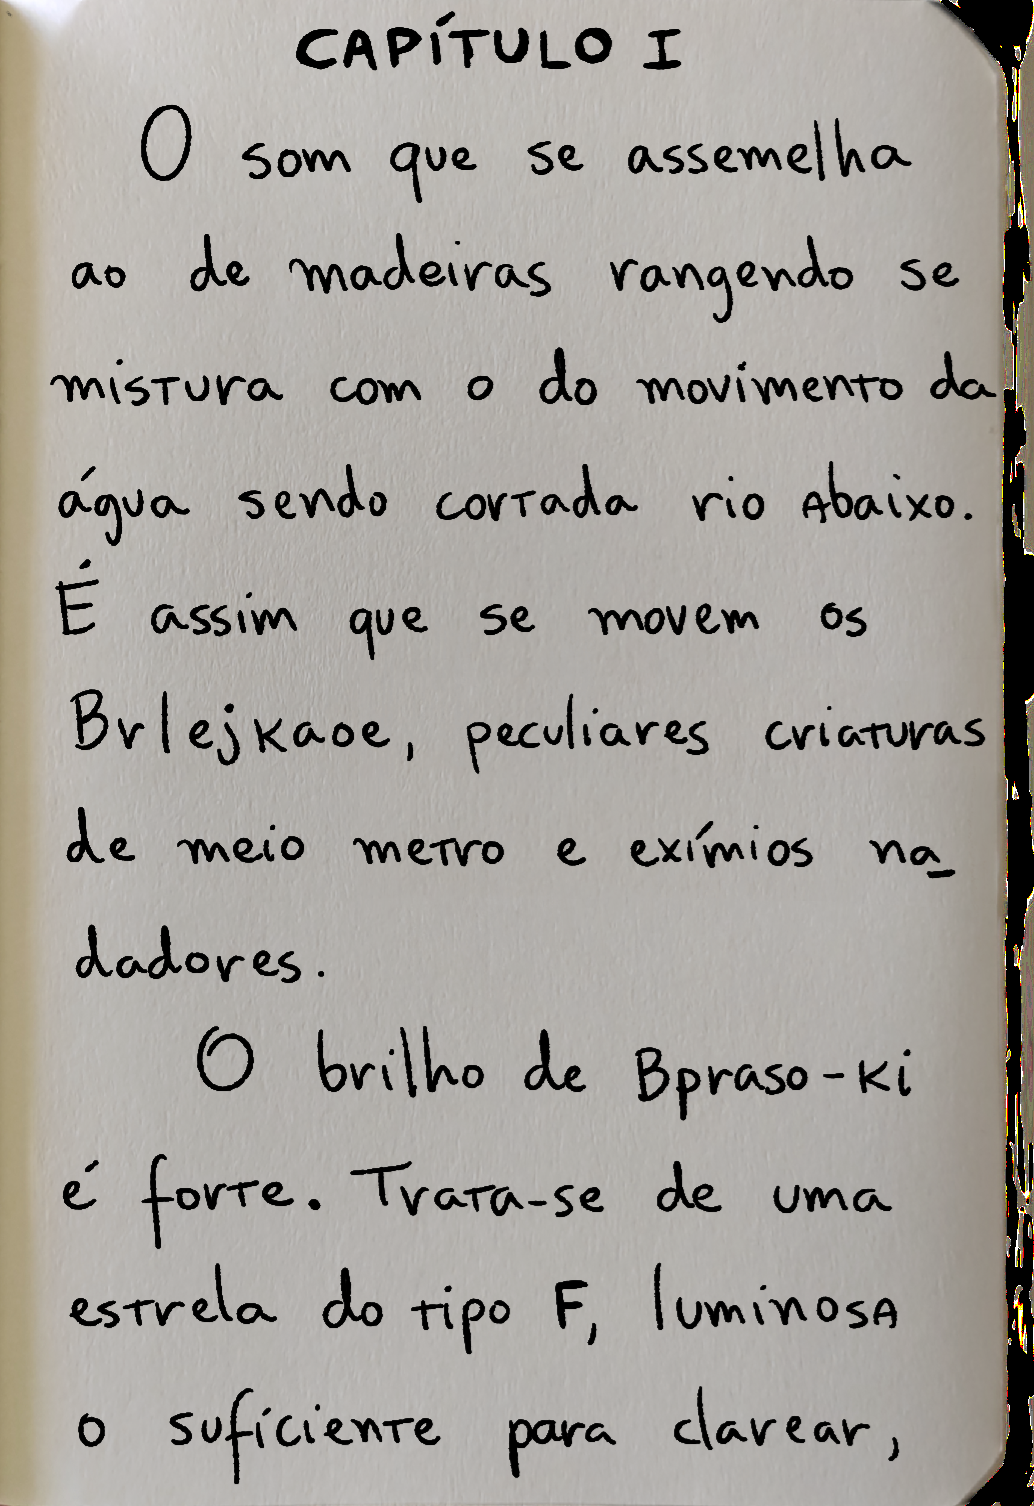 CAPÍTULO I
O som que se assemelha
ao de madeiras rangendo se
mistura com o do movimento da
água sendo cortada rio Abaixo.
É assim que se movem os
Brlejkaoe, peculiares criaturas
de meio metro e exímios na_
dadores.
O brilho de Bpraso-Ki
é forte. Trata-se de uma
estrela do tipo F, luminosA
o suficiente para clarear,